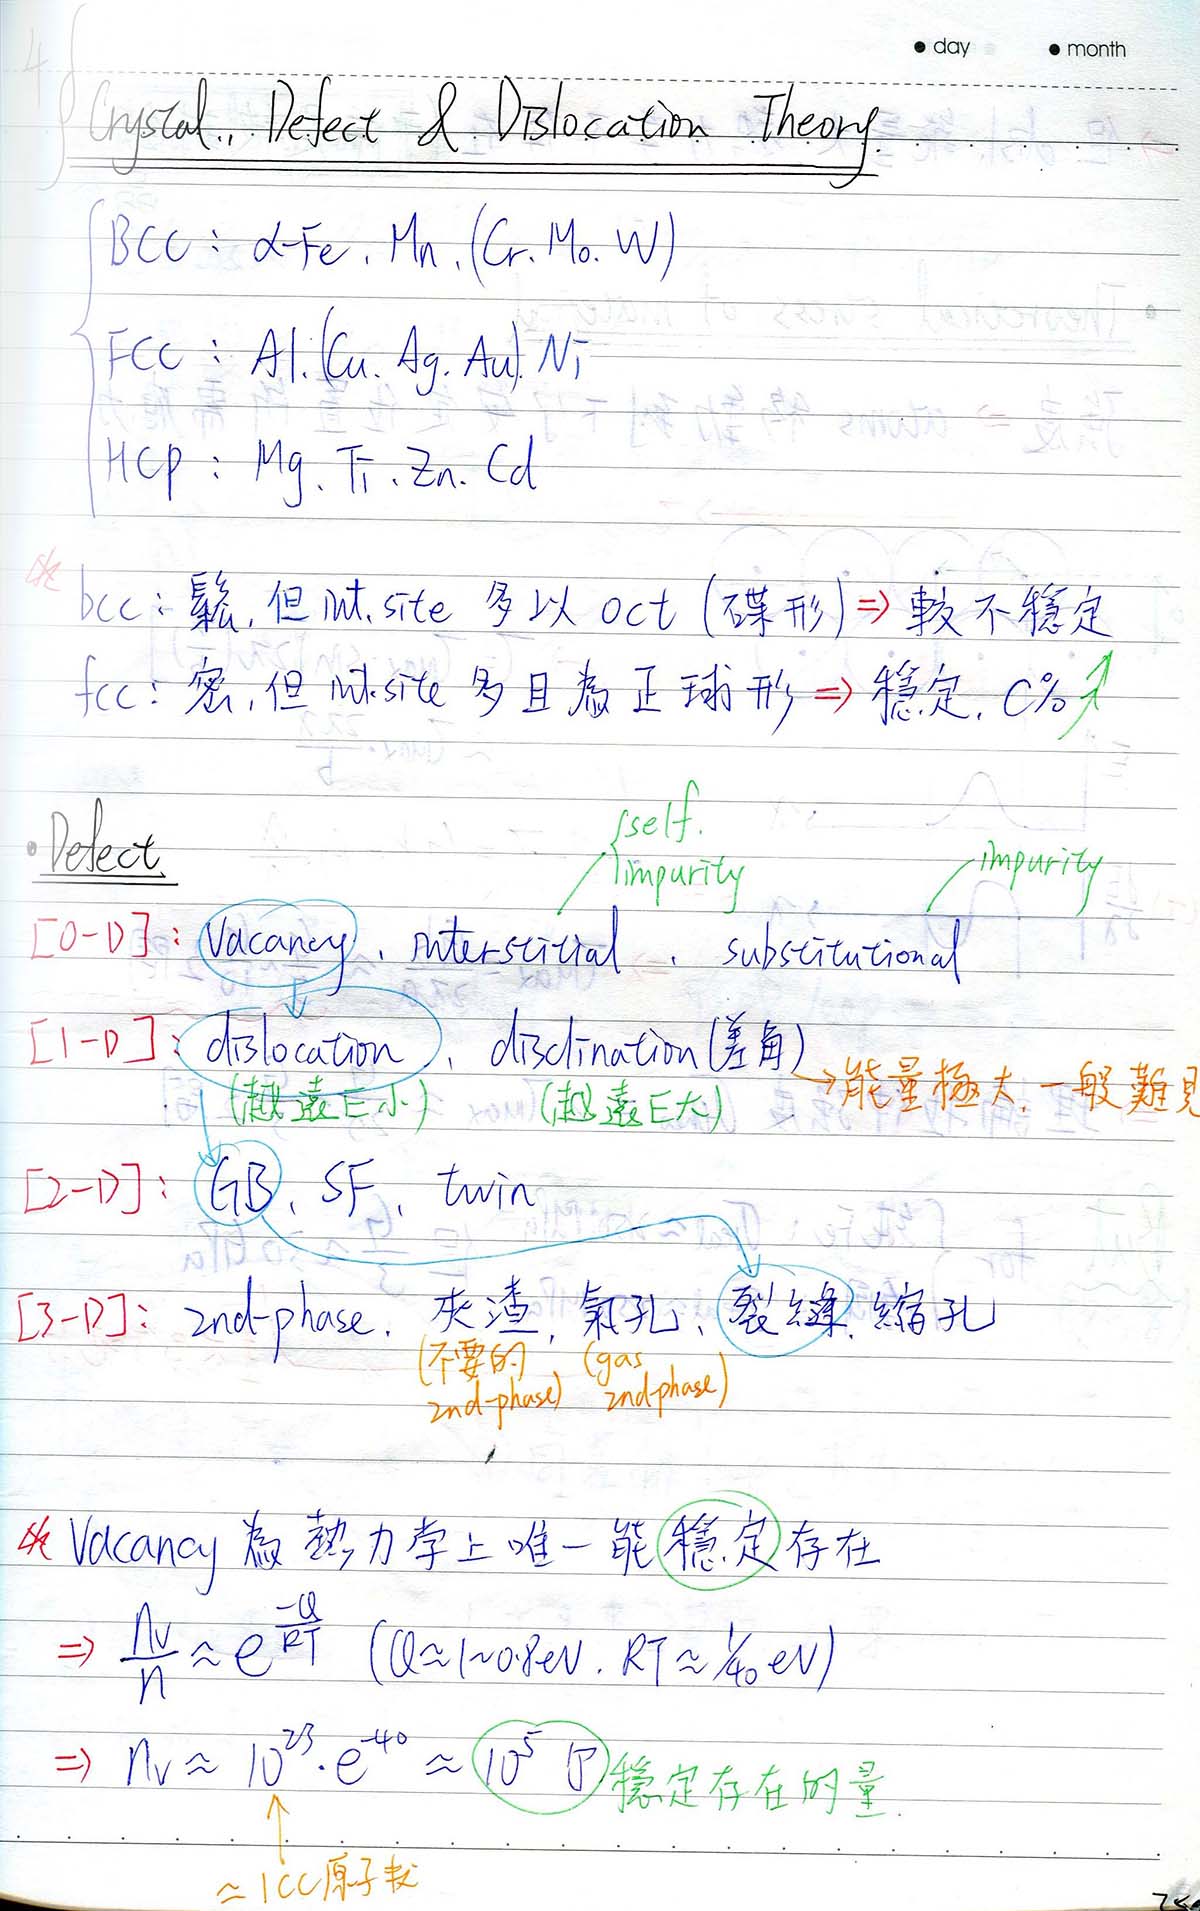 • day • month
Crystal, Defect & Dislocation Theory
BCC : α-Fe, Mn, (Cr. Mo. W)
FCC : Al. (Cu. Ag. Au). Ni
HCP : Mg. Ti. Zn. Cd
bcc : 鬆, 但 int. site 多以 oct (碟形) ⇒ 較不穩定
fcc : 密, 但 int. site 多且為正球形 ⇒ 穩定, C%↑
self.
• Defect impurity impurity
[0-D] : Vacancy, interstitial, substitutional
[1-D] : dislocation, disclination (差角) → 能量極大, 一般難見
(越遠E小) (越遠E大)
[2-D] : GB, SF, twin
[3-D] : 2nd-phase, 灰渣, 氣孔, 裂縫, 縮孔
(不要的 (gas
2nd-phase) 2nd-phase)
Vacancy 為熱力学上唯一能穩定存在
⇒ nv/n ≈ e^(-Q/RT) (Q≈1~0.8eV. RT≈1/40 eV)
⇒ nv ≈ 10^23 · e^-40 ≈ 10^5 个 穩定存在的量
≈ 1CC原子数